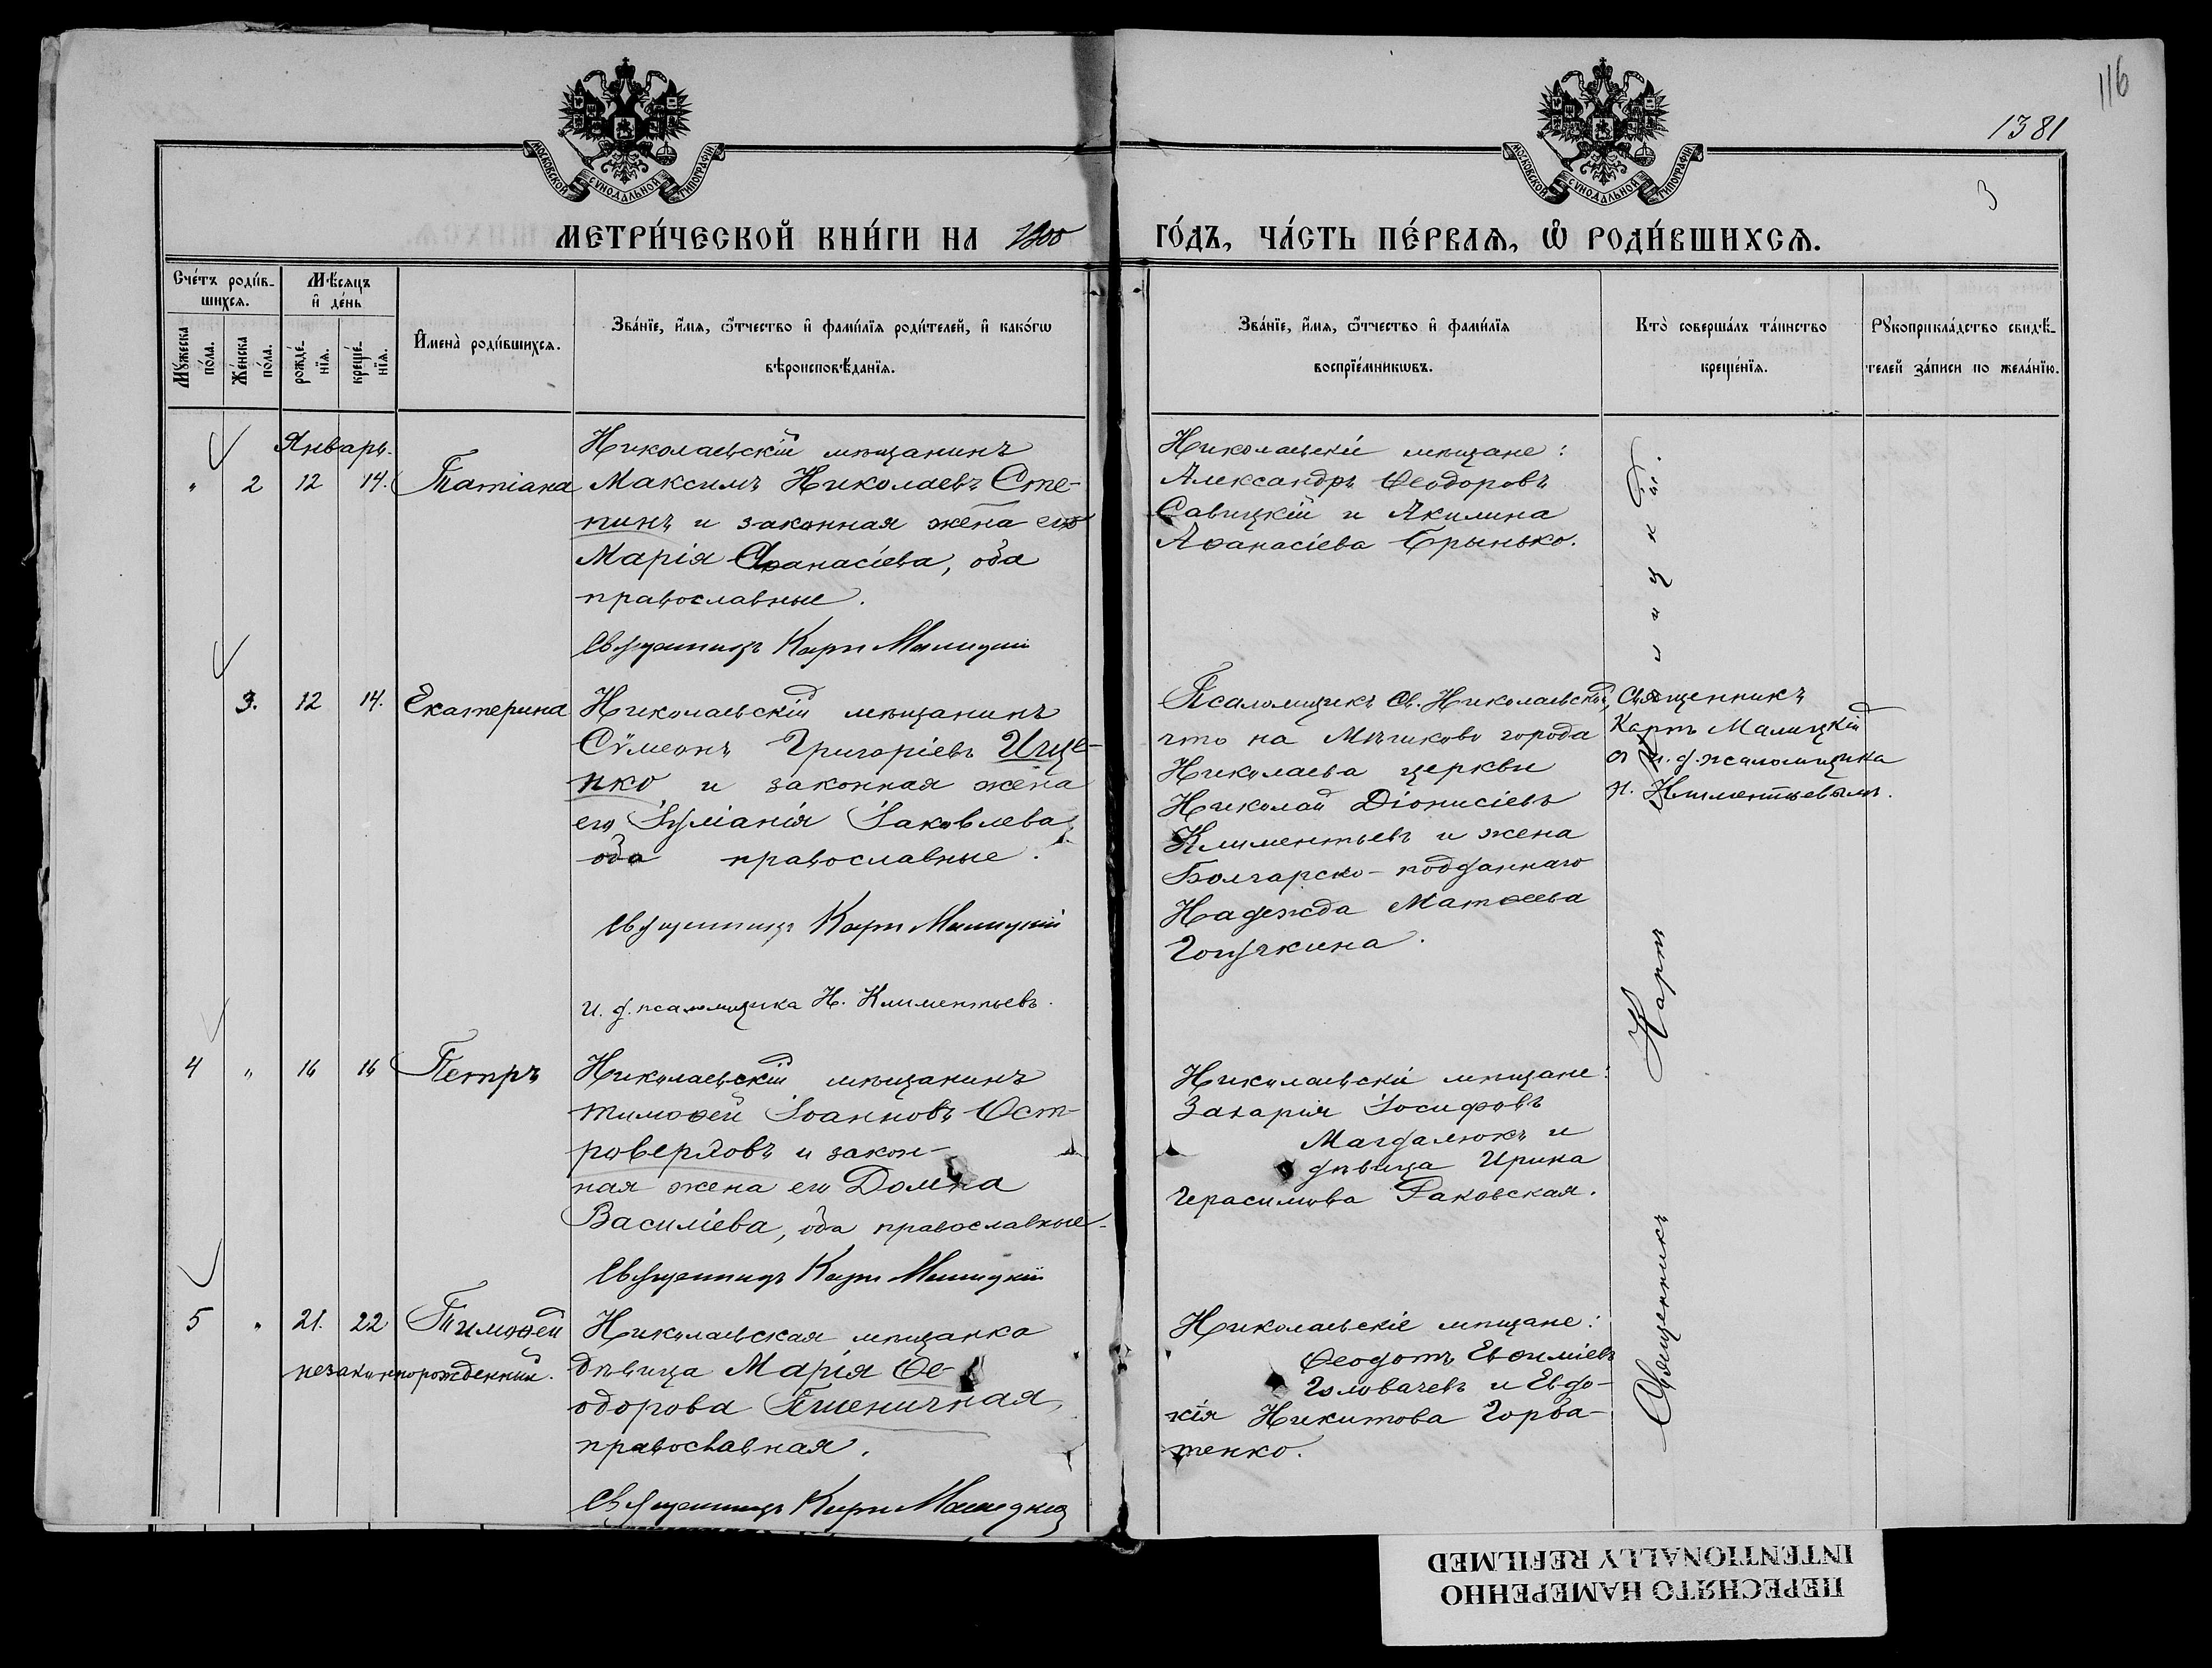 116
1381
3
МОСКОВСКОЙ СѴНОДАЛЬНОЙ ТИПОГРАФІИ
МОСКОВСКОЙ СѴНОДАЛЬНОЙ ТИПОГРАФІИ
МЕТРИ́ЧЕСКОЙ КНИ́ГИ НА 1900
ГО́ДЪ, ЧА́СТЬ ПЕ́РВАѦ, Ѡ҆ РОДИ́ВШИХСѦ.
Сче́тъ роди́в-
шихсѧ.
Мꙋ́жеска по́ла.
Же́нска по́ла.
Мѣ́сѧцъ
и҆ де́нь
рожде́-
нїѧ.
креще́-
нїѧ.
И҆мена̀ роди́вшихсѧ.
Зва́нїе, и҆́мѧ, ѻ҆́тчество и҆ фами́лїѧ роди́телей, и҆ како́гѡ
вѣроисповѣ́данїѧ.
Зва́нїе, и҆́мѧ, ѻ҆́тчество и҆ фами́лїѧ
воспрїе́мникѡвъ.
Кто̀ соверша́лъ та́инство
креще́нїѧ.
Рꙋкоприкла́дство свидѣ́-
телей за́писи по жела́нїю.
Январь.
" 2 12 14. Татіана
Николаевскій мѣщанинъ
Максимъ Николаевъ Сте-
пинъ и законная жена его
Марія Аѳанасіева, оба
православные.
Священникъ Карпъ Малицкій
Николаевскіе мѣщане:
Александръ Ѳеодоровъ
Савицкій и Акилина
Аѳанасіева Брынько.
3. 12 14. Екатерина
Николаевскій мѣщанинъ
Сѵмеонъ Григоріевъ Ище-
нко и законная жена
его Іуліанія Іаковлева,
оба православные.
Священникъ Карпъ Малицкій
и. д. псаломщика Н. Климентьевъ.
Псаломщикъ Св. Николаевской,
что на Мѣшково города
Николаева церкви
Николай Діонисіевъ
Климентьевъ и жена
Болгарско-подданнаго
Надежда Матѳеева
Священникъ
Карпъ Малицкій
съ и. д. псаломщика
Н. Климентьевымъ.
4 " 16 16 Петръ
Николаевскій мѣщанинъ
Тимоѳей Іоанновъ Ост-
роверховъ и закон-
ная жена его Домна
Василіева, оба православные.
Священникъ Карпъ Малицкій
Николаевскіе мѣщане:
Захарія Іосифовъ
Магдалюкъ и
дѣвица Ирина
Герасимова Раковская.
5 " 21. 22 Тимоѳей
незаконнорожденный.
Николаевская мѣщанка
дѣвица Марія Ѳе-
одорова Пшеничная,
православная.
Священникъ Карпъ Малицкій
Николаевскіе мѣщане:
Ѳеодотъ Евѳиміевъ
Головачевъ и Евдо-
кія Никитова Горба-
тенко.
Священникъ Карпъ
ПЕРЕСНЯТО НАМЕРЕННО
INTENTIONALLY REFILMED